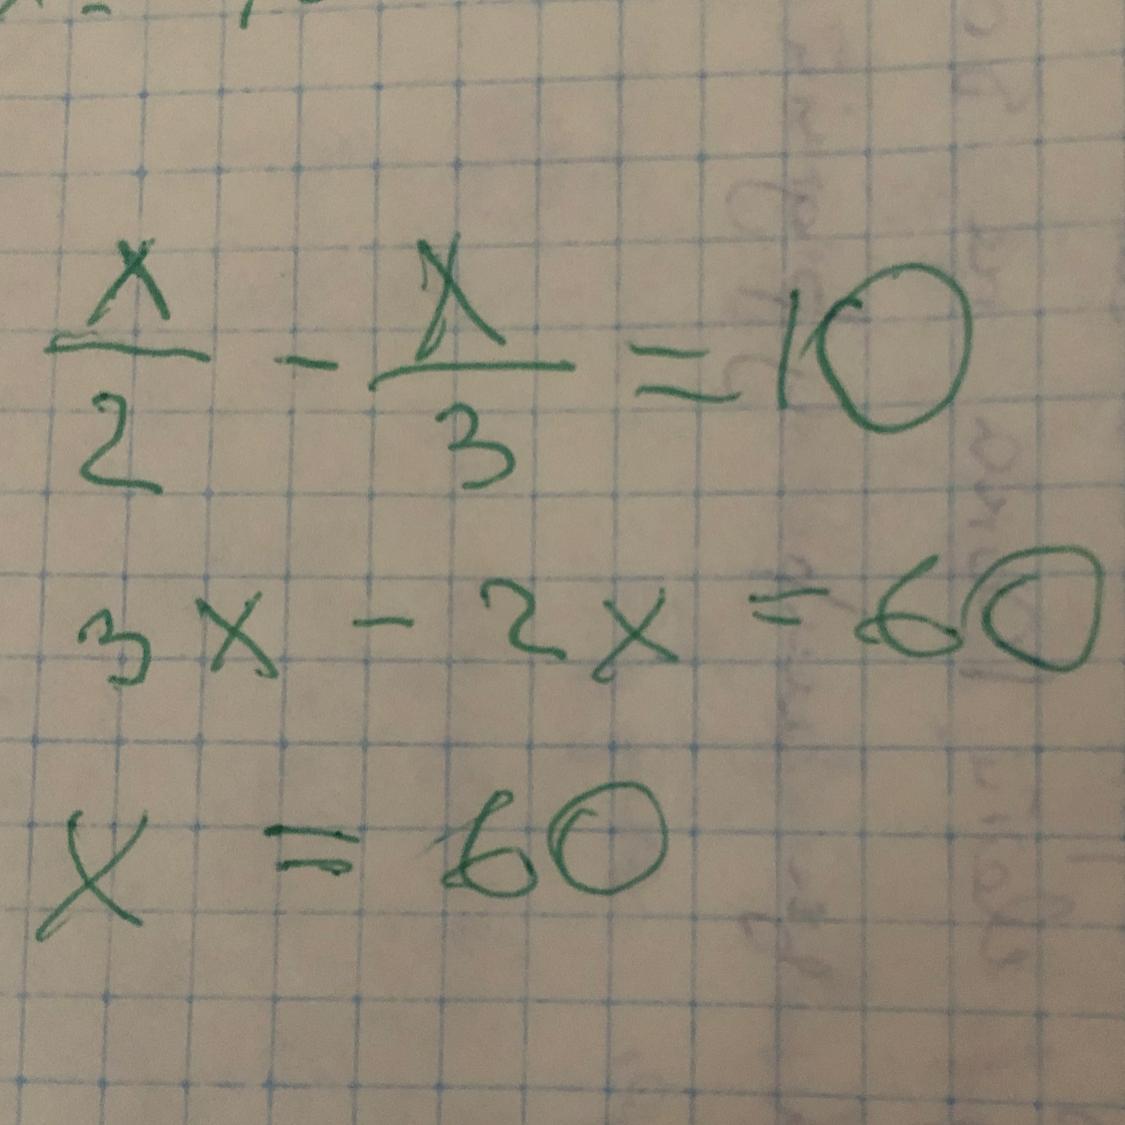 x/2 - x/3 = 10
3x - 2x = 60
x = 60